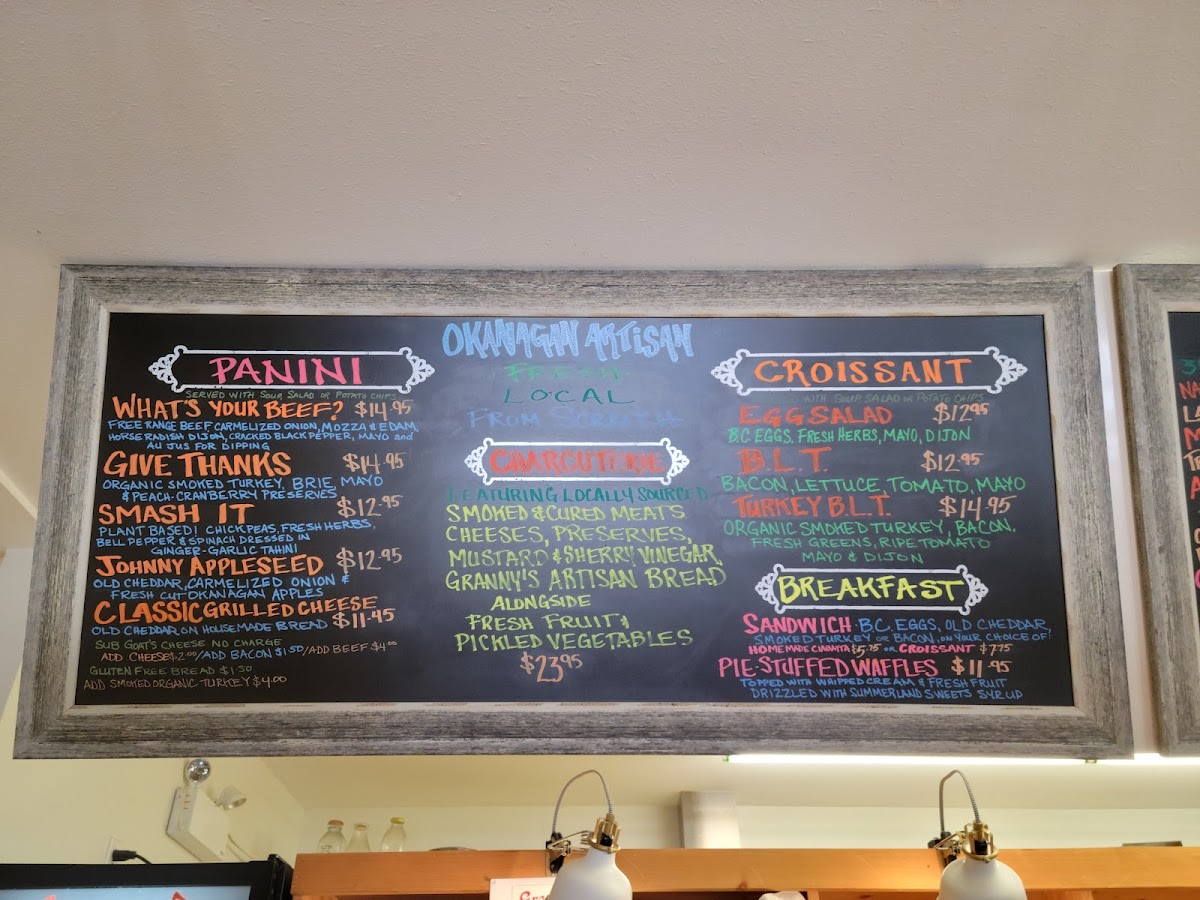 PANINI
SERVED WITH SOUP, SALAD OR POTATO CHIPS
WHAT'S YOUR BEEF? $14.95
FREE RANGE BEEF CARMELIZED ONION, MOZZA & EDAM,
HORSERADISH DIJON, CRACKED BLACK PEPPER, MAYO and
AU JUS FOR DIPPING
GIVE THANKS $14.95
ORGANIC SMOKED TURKEY, BRIE, MAYO
& PEACH-CRANBERRY PRESERVES
SMASH IT $12.95
PLANT BASED! CHICKPEAS, FRESH HERBS,
BELL PEPPER & SPINACH DRESSED IN
GINGER-GARLIC TAHINI
JOHNNY APPLESEED $12.95
OLD CHEDDAR, CARMELIZED ONION &
FRESH CUT OKANAGAN APPLES
CLASSIC GRILLED CHEESE
OLD CHEDDAR ON HOUSEMADE BREAD $11.45
SUB GOAT'S CHEESE NO CHARGE
ADD CHEESE $2.00/ADD BACON $1.50/ADD BEEF $4.00
GLUTEN FREE BREAD $1.50
ADD SMOKED ORGANIC TURKEY $4.00
OKANAGAN ARTISAN
FRESH
LOCAL
FROM SCRATCH
CHARCUTERIE
FEATURING LOCALLY SOURCED
SMOKED & CURED MEATS
CHEESES, PRESERVES,
MUSTARD & SHERRY VINEGAR,
GRANNY'S ARTISAN BREAD
ALONGSIDE
FRESH FRUIT &
PICKLED VEGETABLES
$23.95
CROISSANT
WITH SOUP, SALAD OR POTATO CHIPS
EGG SALAD $12.95
B.C EGGS, FRESH HERBS, MAYO, DIJON
B.L.T. $12.95
BACON, LETTUCE, TOMATO, MAYO
TURKEY B.L.T. $14.95
ORGANIC SMOKED TURKEY, BACON,
FRESH GREENS, RIPE TOMATO
MAYO & DIJON
BREAKFAST
SANDWICH - B.C. EGGS, OLD CHEDDAR,
SMOKED TURKEY OR BACON, ON YOUR CHOICE OF!
HOMEMADE CIABATTA $5.75 OR CROISSANT $7.75
PIE-STUFFED WAFFLES $11.95
TOPPED WITH WHIPPED CREAM & FRESH FRUIT
DRIZZLED WITH SUMMERLAND SWEETS SYRUP